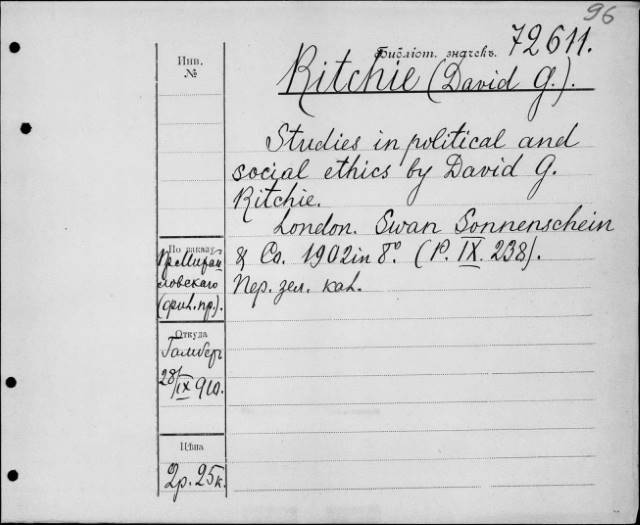 96
Библіот. значекъ. 72611.
Инв.
№
Ritchie (David G.).
Studies in political and
social ethics by David G.
Ritchie.
London. Swan Sonnenschein
& Co. 1902 in 8°. (P. IX. 238).
Пер. зел. кал.
По заказу
ловскаго
Откуда
28/IX 910.
Цѣна
2р. 25к.